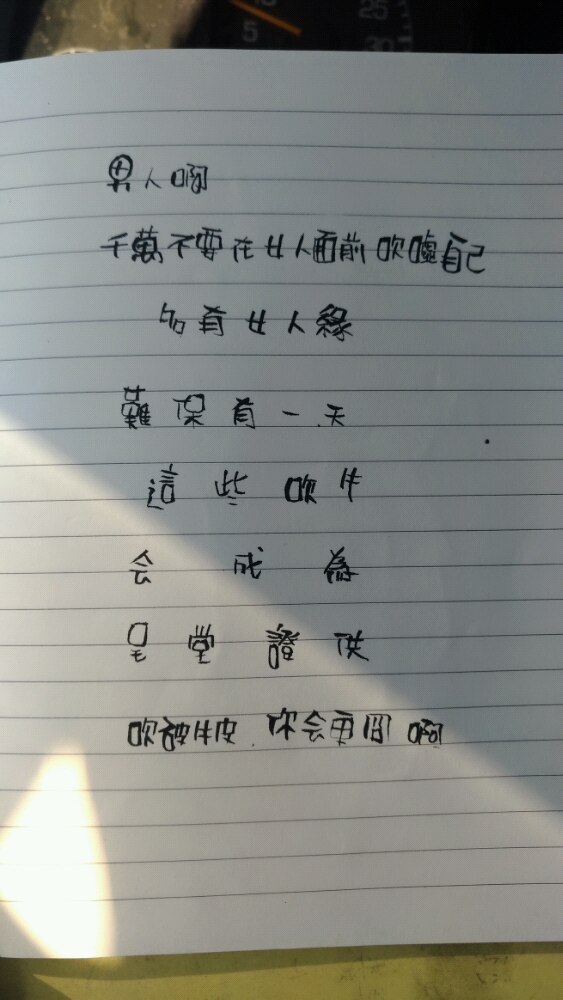 男人啊
千萬不要在女人面前吹噓自己
多有女人緣
難保有一天
這些吹牛
会成為
呈堂證供
吹破牛皮.你会更困啊
5